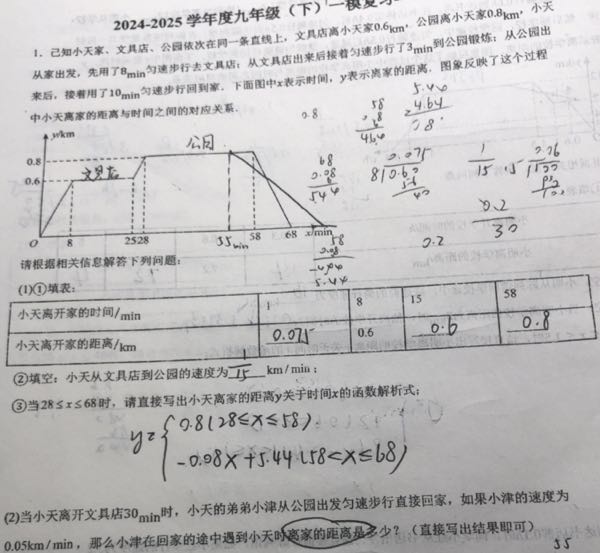 2024-2025学年度九年级（下）一模复习
1. 已知小天家、文具店、公园依次在同一条直线上，文具店离小天家0.6km，公园离小天家0.8km，小天
从家出发，先用了8min匀速步行去文具店；从文具店出来后接着匀速步行了3min到公园锻炼；从公园出
来后，接着用了10min匀速步行回到家．下面图中x表示时间，y表示离家的距离．图象反映了这个过程
中小天离家的距离与时间之间的对应关系．
y/km
0.8
0.6
O
8
25
28
58
68
x/min
文具店
公园
35min
0.8
58
0.08
464
5.44
4.64
0.8
68
0.08
544
0.075
8
0.60
56
40
1
15
0.2
30
0.2
58
0.08
5.44
请根据相关信息解答下列问题：
(1)①填表：
小天离开家的时间/min 1 8 15 58
小天离开家的距离/km 0.075 0.6 0.6 0.8
②填空：小天从文具店到公园的速度为 1/15 km/min；
③当28≤x≤68时，请直接写出小天离家的距离y关于时间x的函数解析式；
y={0.8(28≤x≤58)
-0.08x+5.44(58<x≤68)
(2)当小天离开文具店30min时，小天的弟弟小津从公园出发匀速步行直接回家，如果小津的速度为
0.05km/min，那么小津在回家的途中遇到小天时离家的距离是多少？（直接写出结果即可）
55